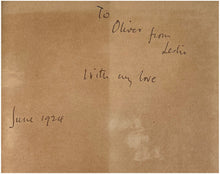 To
Oliver from
Leslie
With my love
June 1924